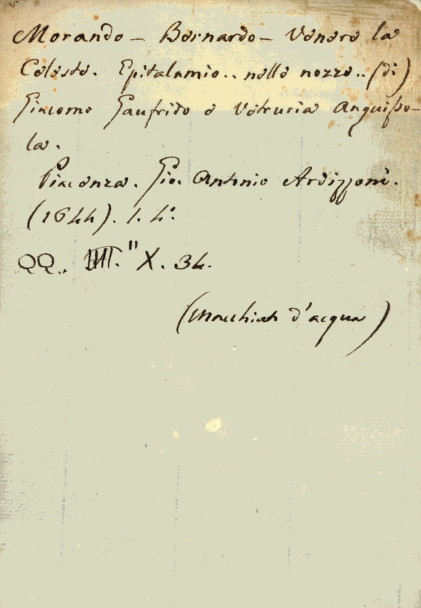 Morando - Bernardo - Venere la
Celeste. Epitalamio.. nelle nozze.. (di)
Giacomo Gaufrido e Veturia Anguisso-
la.
Piacenza. Gio. Antonio Ardizzoni.
(1644). 1. 4°.
QQ.. IIII." X. 34.
(Macchiato d'acqua)